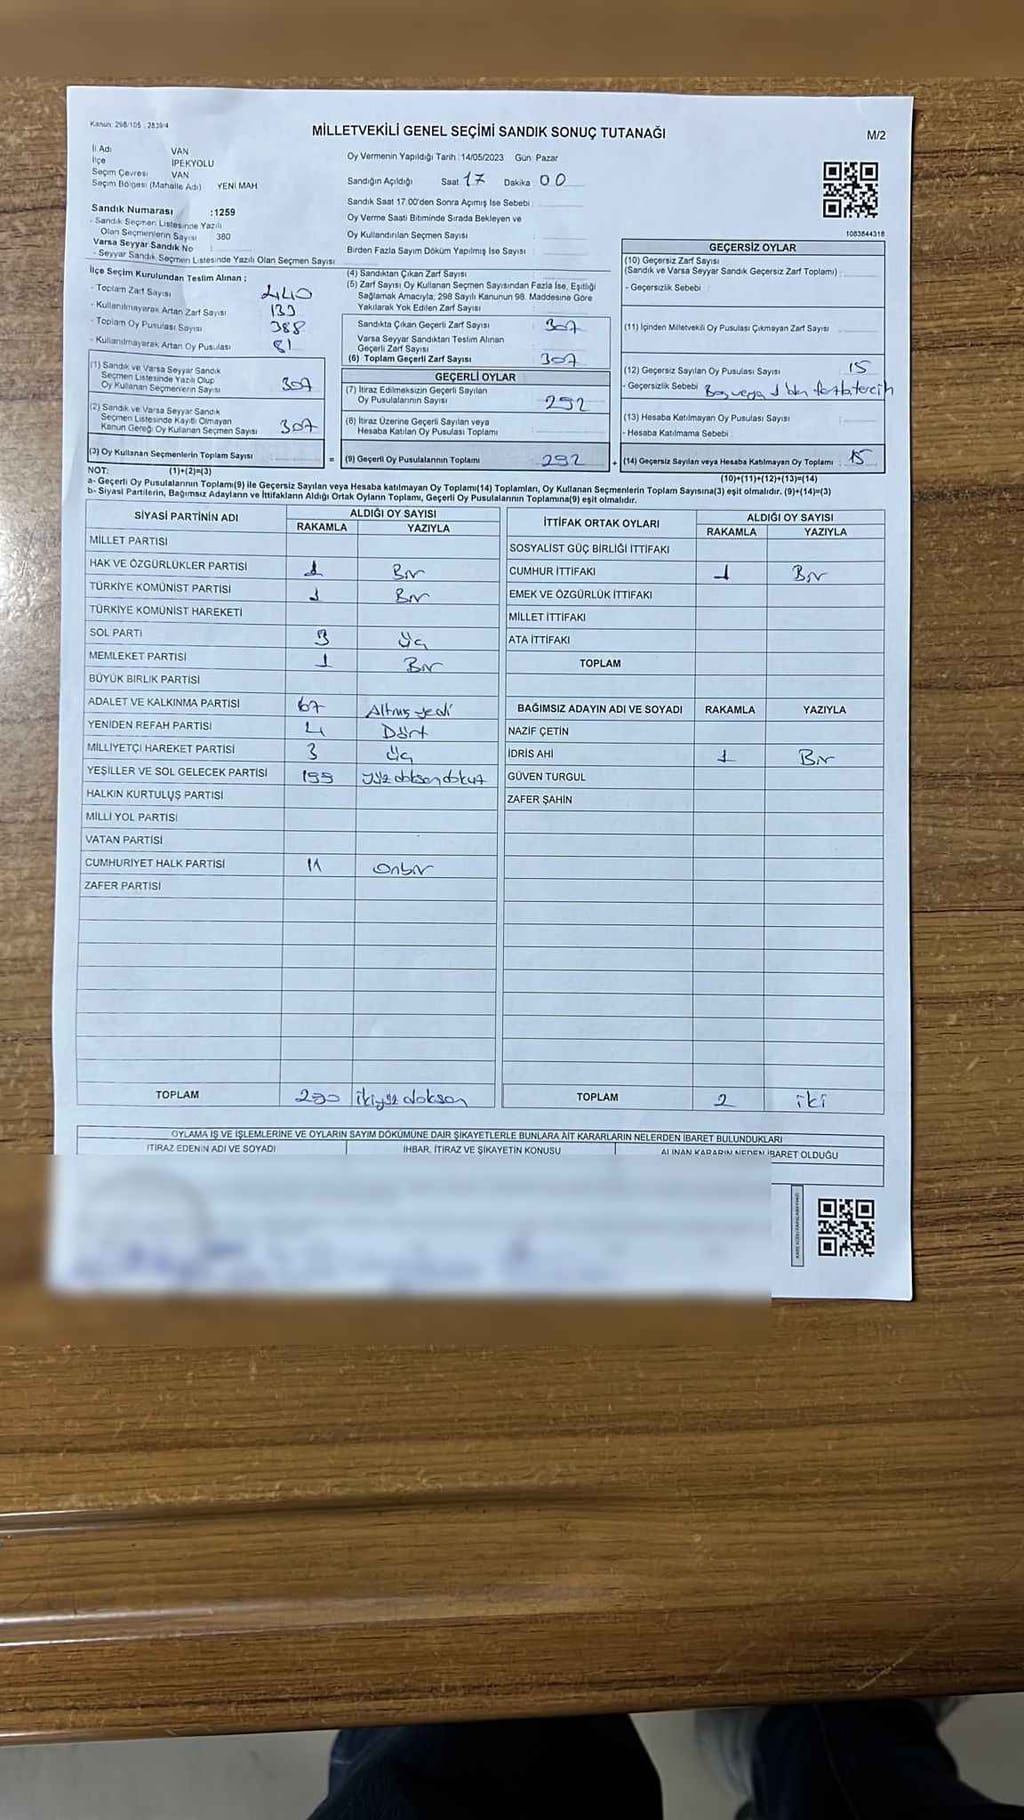 Kanun: 298/105 : 2839/4
MİLLETVEKİLİ GENEL SEÇİMİ SANDIK SONUÇ TUTANAĞI
M/2
İl Adı VAN
İlçe İPEKYOLU
Seçim Çevresi VAN
Seçim Bölgesi (Mahalle Adı) YENİ MAH
Sandık Numarası :1259
- Sandık Seçmen Listesinde Yazılı
Olan Seçmenlerin Sayısı 380
Varsa Seyyar Sandık No :
- Seyyar Sandık Seçmen Listesinde Yazılı Olan Seçmen Sayısı
İlçe Seçim Kurulundan Teslim Alınan ;
- Toplam Zarf Sayısı 440
- Kullanılmayarak Artan Zarf Sayısı 133
- Toplam Oy Pusulası Sayısı 388
- Kullanılmayarak Artan Oy Pusulası 81
(1) Sandık ve Varsa Seyyar Sandık
Seçmen Listesinde Yazılı Olup
Oy Kullanan Seçmenlerin Sayısı 307
(2) Sandık ve Varsa Seyyar Sandık
Seçmen Listesinde Kayıtlı Olmayan
Kanun Gereği Oy Kullanan Seçmen Sayısı 307
(3) Oy Kullanan Seçmenlerin Toplam Sayısı
Oy Vermenin Yapıldığı Tarih :14/05/2023 Gün Pazar
Sandığın Açıldığı Saat 17 Dakika 00
Sandık Saat 17.00'den Sonra Açımış İse Sebebi :
Oy Verme Saati Bitiminde Sırada Bekleyen ve
Oy Kullandırılan Seçmen Sayısı
Birden Fazla Sayım Döküm Yapılmış İse Sayısı
(4) Sandıktan Çıkan Zarf Sayısı
(5) Zarf Sayısı Oy Kullanan Seçmen Sayısından Fazla İse, Eşitliği
Sağlamak Amacıyla, 298 Sayılı Kanunun 98. Maddesine Göre
Yakılarak Yok Edilen Zarf Sayısı
Sandıkta Çıkan Geçerli Zarf Sayısı 307
Varsa Seyyar Sandıktan Teslim Alınan
Geçerli Zarf Sayısı
(6) Toplam Geçerli Zarf Sayısı 307
GEÇERLİ OYLAR
(7) İtiraz Edilmeksizin Geçerli Sayılan
Oy Pusulalarının Sayısı 292
(8) İtiraz Üzerine Geçerli Sayılan veya
Hesaba Katılan Oy Pusulası Toplamı
= (9) Geçerli Oy Pusulalarının Toplamı 292
1083844318
GEÇERSİZ OYLAR
(10) Geçersiz Zarf Sayısı
(Sandık ve Varsa Seyyar Sandık Geçersiz Zarf Toplamı) :
- Geçersizlik Sebebi :
(11) İçinden Milletvekili Oy Pusulası Çıkmayan Zarf Sayısı
(12) Geçersiz Sayılan Oy Pusulası Sayısı 15
- Geçersizlik Sebebi Boş veya 1'den fazla tercih
(13) Hesaba Katılmayan Oy Pusulası Sayısı
- Hesaba Katılmama Sebebi :
+ (14) Geçersiz Sayılan veya Hesaba Katılmayan Oy Toplamı 15
NOT: (1)+(2)=(3) (10)+(11)+(12)+(13)=(14)
a- Geçerli Oy Pusulalarının Toplam(9) ile Geçersiz Sayılan veya Hesaba katılmayan Oy Toplamı(14) Toplamları, Oy Kullanan Seçmenlerin Toplam Sayısına(3) eşit olmalıdır. (9)+(14)=(3)
b- Siyasi Partilerin, Bağımsız Adayların ve İttifakların Aldığı Ortak Oyların Toplamı, Geçerli Oy Pusulalarının Toplamına(9) eşit olmalıdır.
SİYASİ PARTİNİN ADI ALDIĞI OY SAYISI
RAKAMLA YAZIYLA
MİLLET PARTİSİ
HAK VE ÖZGÜRLÜKLER PARTİSİ 1 Bir
TÜRKİYE KOMÜNİST PARTİSİ 1 Bir
TÜRKİYE KOMÜNİST HAREKETİ
SOL PARTİ 3 Üç
MEMLEKET PARTİSİ 1 Bir
BÜYÜK BİRLİK PARTİSİ
ADALET VE KALKINMA PARTİSİ 67 Altmış yedi
YENİDEN REFAH PARTİSİ 4 Dört
MİLLİYETÇİ HAREKET PARTİSİ 3 Üç
YEŞİLLER VE SOL GELECEK PARTİSİ 199 yüz doksan dokuz
HALKIN KURTULUŞ PARTİSİ
MİLLİ YOL PARTİSİ
VATAN PARTİSİ
CUMHURİYET HALK PARTİSİ 11 Onbir
ZAFER PARTİSİ
TOPLAM 290 ikiyüz doksan
İTTİFAK ORTAK OYLARI ALDIĞI OY SAYISI
RAKAMLA YAZIYLA
SOSYALİST GÜÇ BİRLİĞİ İTTİFAKI
CUMHUR İTTİFAKI 1 Bir
EMEK VE ÖZGÜRLÜK İTTİFAKI
MİLLET İTTİFAKI
ATA İTTİFAKI
TOPLAM
BAĞIMSIZ ADAYIN ADI VE SOYADI RAKAMLA YAZIYLA
NAZİF ÇETİN
İDRİS AHİ 1 Bir
GÜVEN TURGUL
ZAFER ŞAHİN
TOPLAM 2 iki
OYLAMA İŞ VE İŞLEMLERİNE VE OYLARIN SAYIM DÖKÜMÜNE DAİR ŞİKAYETLERLE BUNLARA AİT KARARLARIN NELERDEN İBARET BULUNDUKLARI
İTİRAZ EDENİN ADI VE SOYADI İHBAR, İTİRAZ VE ŞİKAYETİN KONUSU ALINAN KARARIN NEDEN İBARET OLDUĞU